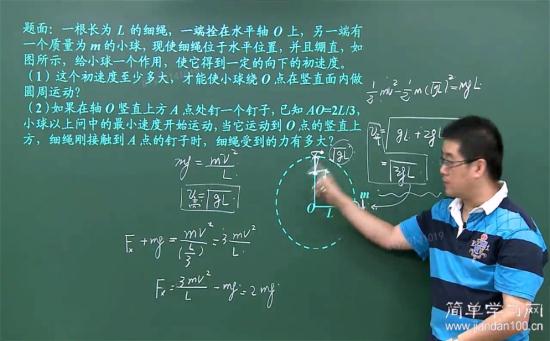 题面：一根长为 L 的细绳，一端拴在水平轴 O 上，另一端有
一个质量为 m 的小球，现使细绳位于水平位置，并且绷直，如
图所示，给小球一个作用，使它得到一定的向下的初速度。
（1）这个初速度至少多大，才能使小球绕 O 点在竖直面内做
圆周运动？
（2）如果在轴 O 竖直上方 A 点处钉一个钉子，已知 AO=2L/3，
小球以上问中的最小速度开始运动，当它运动到 O 点的竖直上
方，细绳刚接触到 A 点的钉子时，细绳受到的力有多大？
mg = mv²/L
= √gL
F + mg = mv²/(L/3) = 3mv²/L
F = 3mv²/L - mg = 2mg
√gL
O L m
½mv² - ½m(√gL)² = mgL
= √gL + 2gL
= √3gL
简单学习网
www.jiandan100.cn